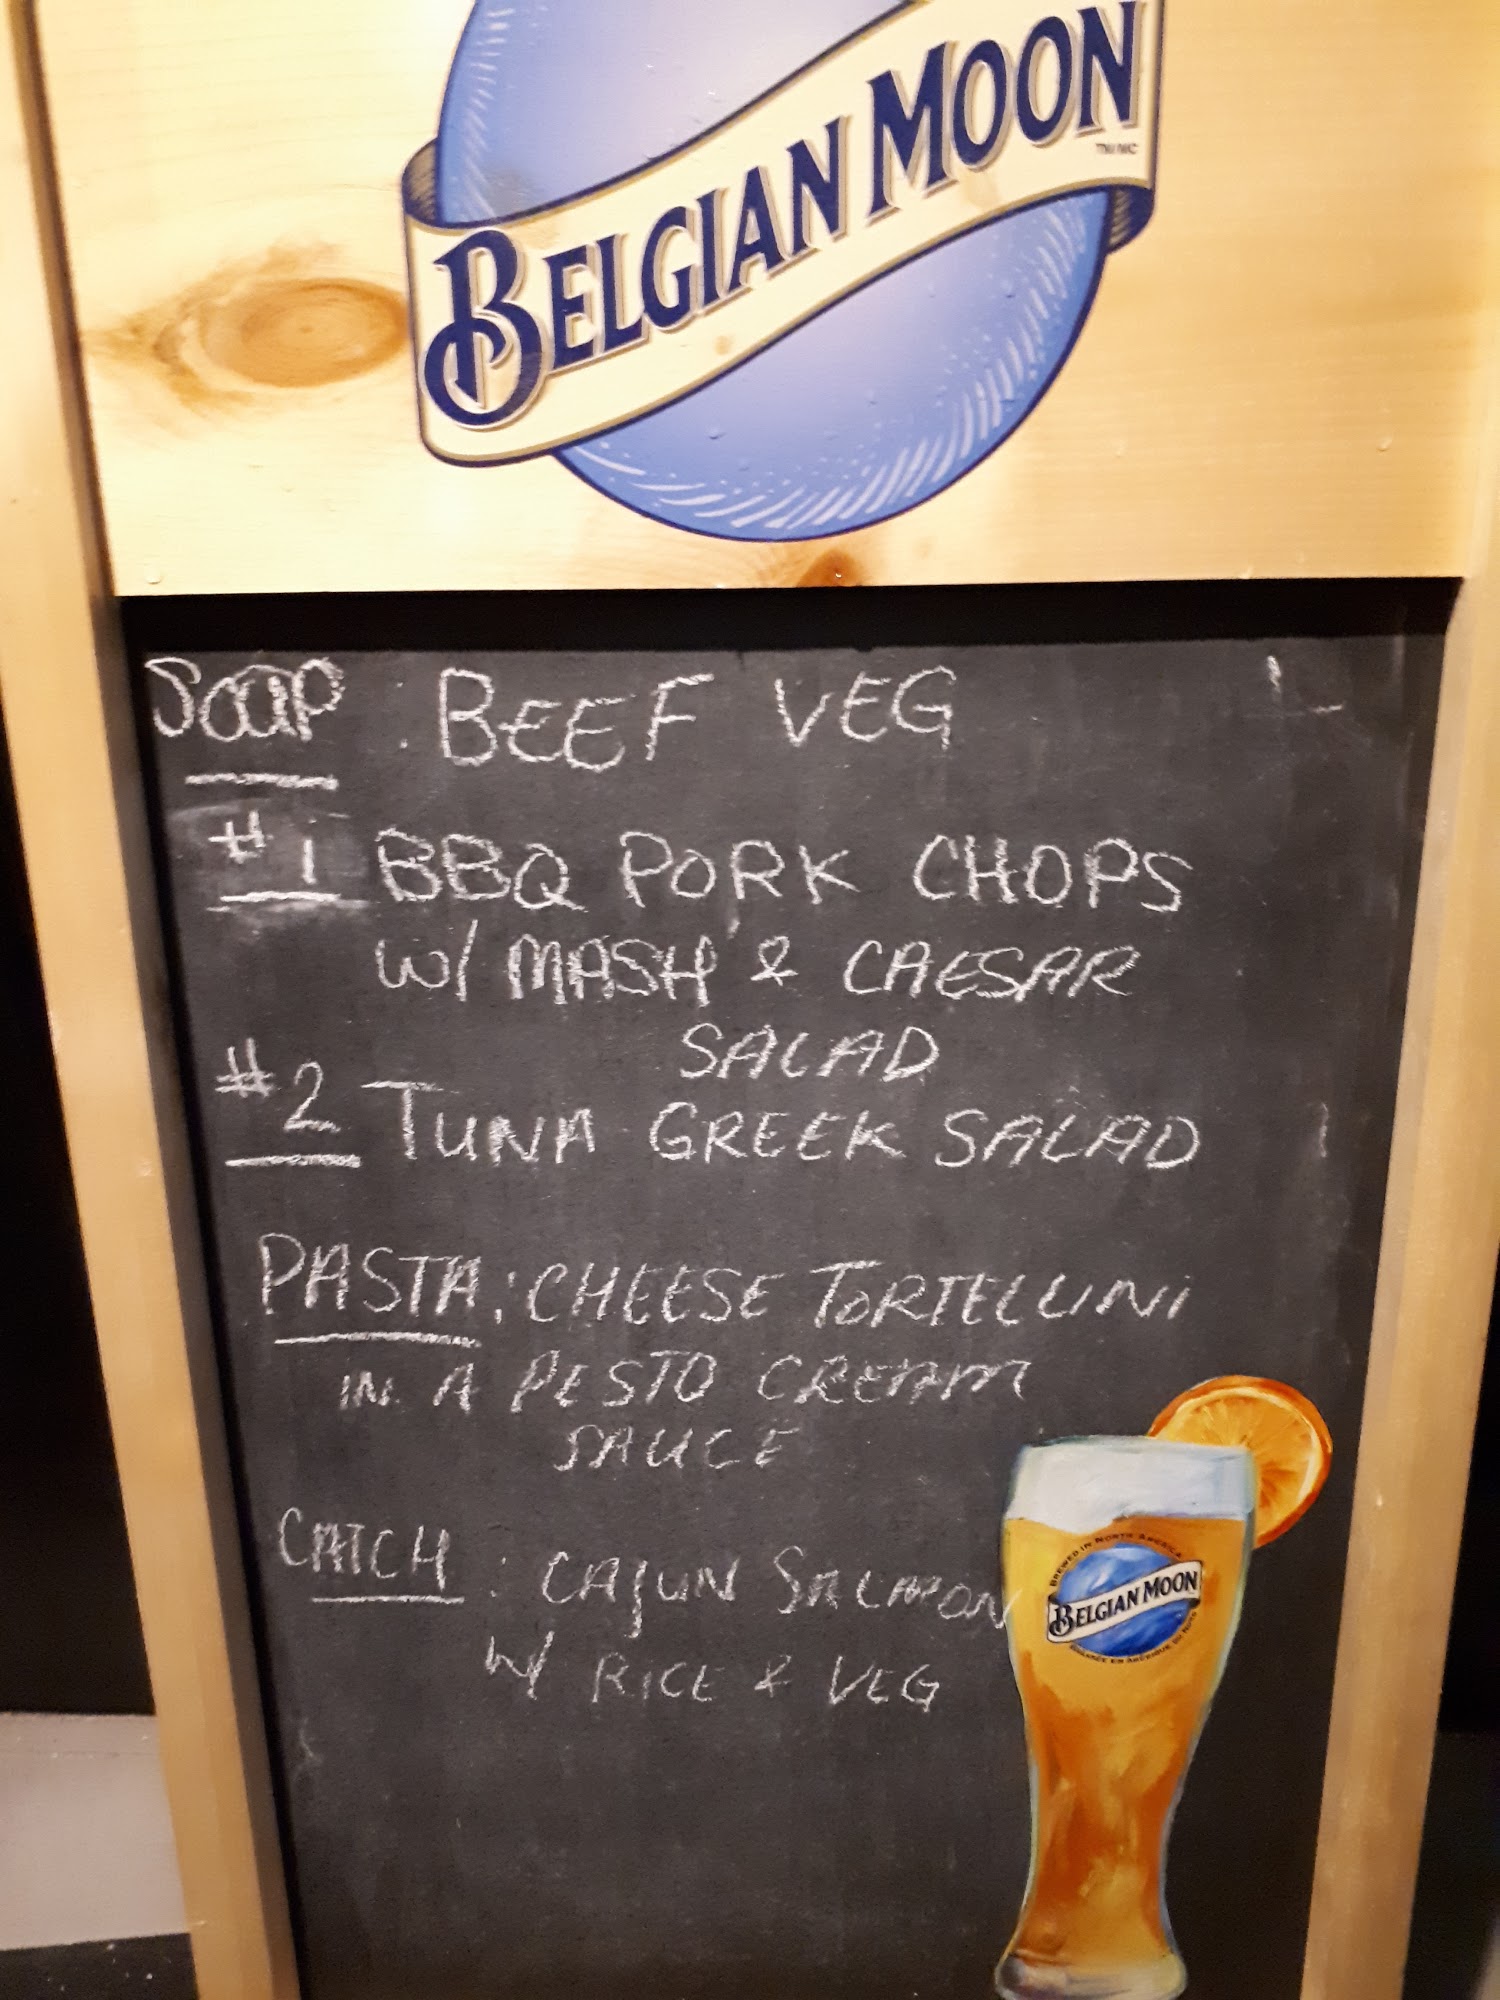 BELGIAN MOON
TM/MC
SOUP : BEEF VEG
#1 BBQ PORK CHOPS
W/ MASH & CAESAR
SALAD
#2 TUNA GREEK SALAD
PASTA : CHEESE TORTELLINI
IN A PESTO CREAM
SAUCE
CATCH : CAJUN SALMON
W/ RICE & VEG
BREWED IN NORTH AMERICA
BELGIAN MOON
BRASSÉE EN AMÉRIQUE DU NORD